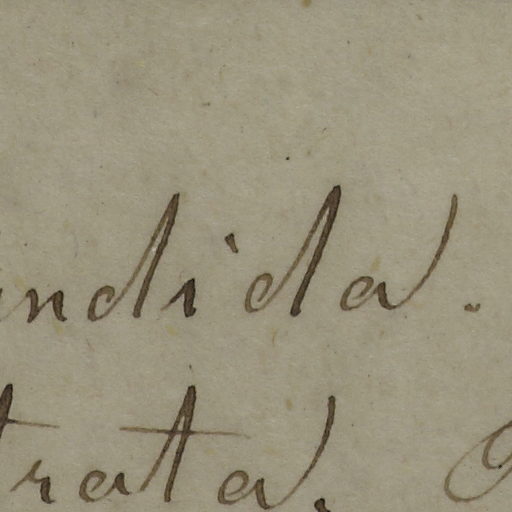 ndida.
trata.